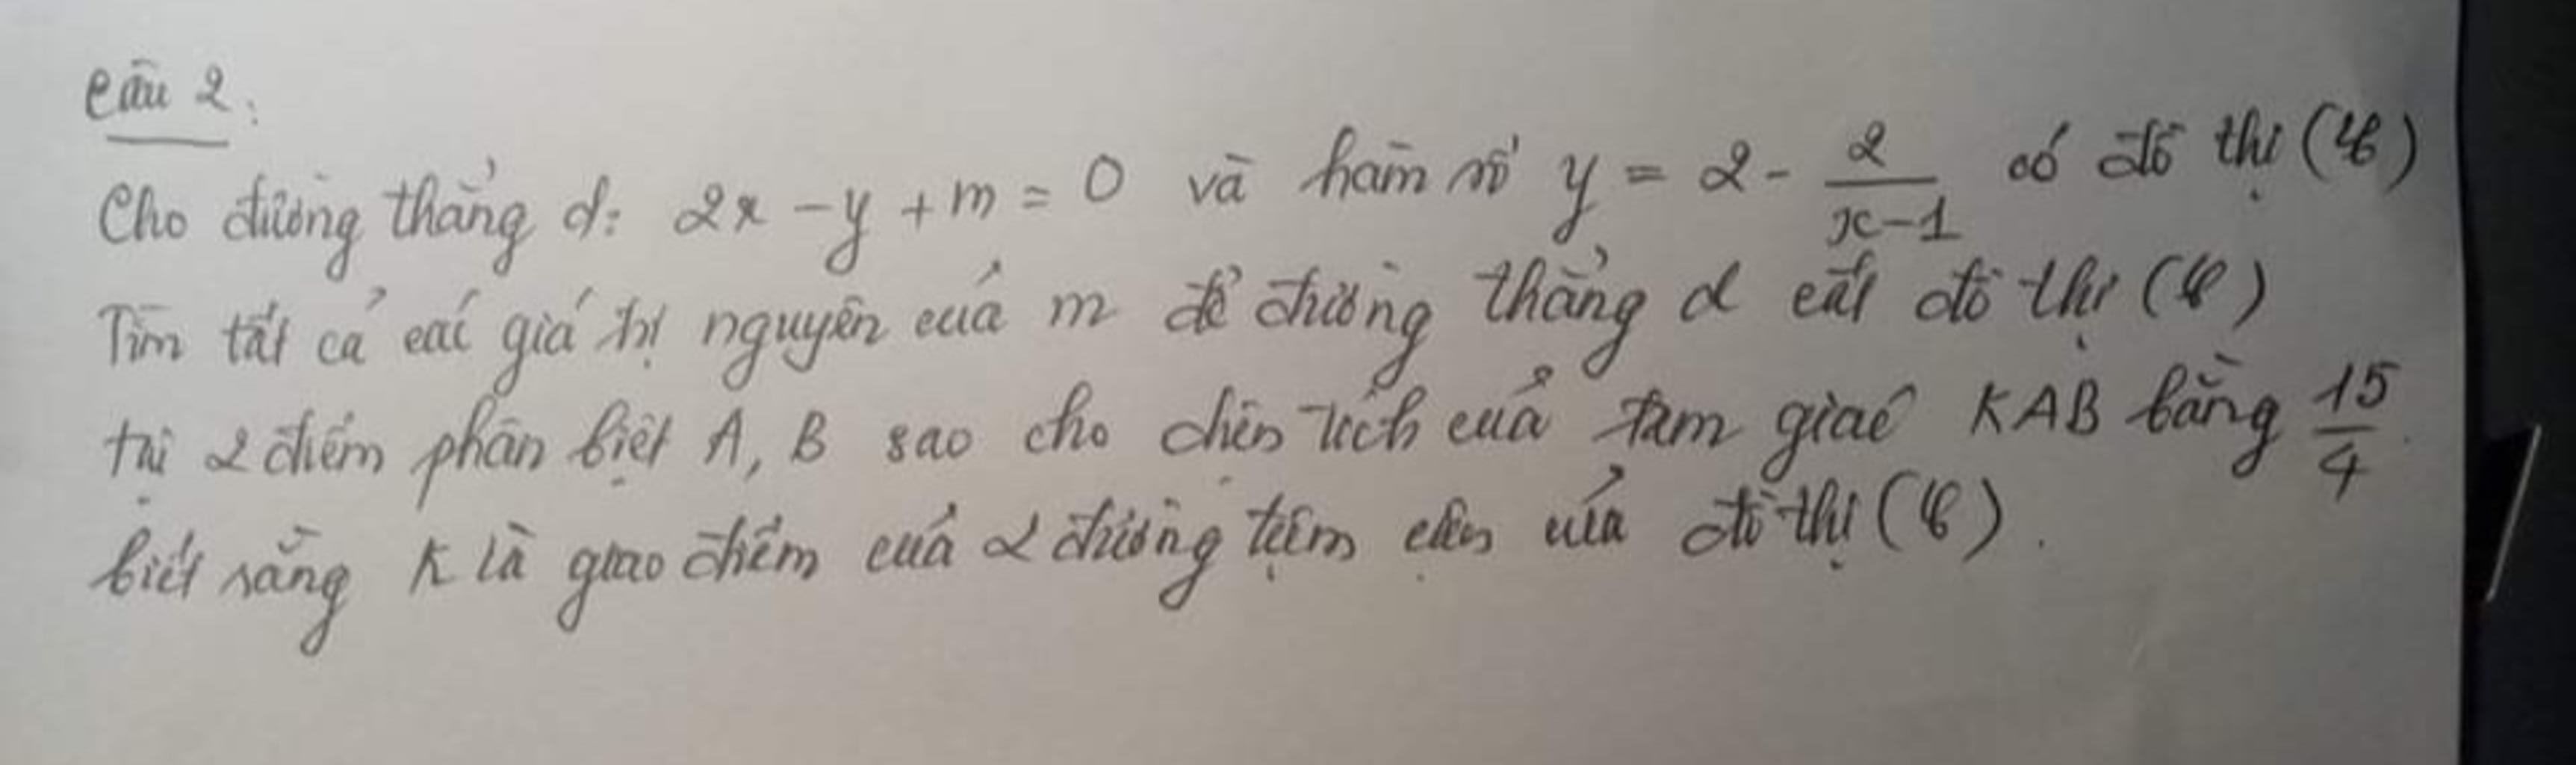 Câu 2:
Cho đường thẳng d: 2x - y + m = 0 và hàm số y = 2 - \frac{2}{x-1} có đồ thị (C)
Tìm tất cả các giá trị nguyên của m để đường thẳng d cắt đồ thị (C)
tại 2 điểm phân biệt A, B sao cho diện tích của tam giác KAB bằng \frac{15}{4}.
biết rằng K là giao điểm của 2 đường tiệm cận của đồ thị (C).